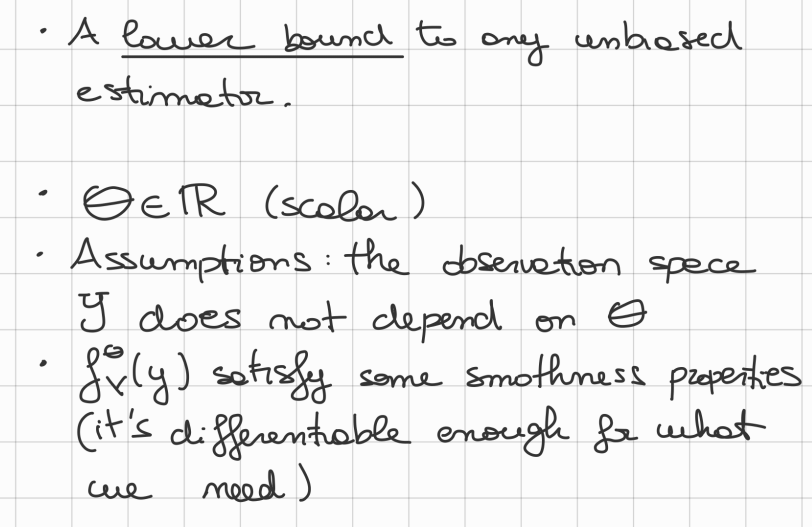 · A lower bound to any unbiased
estimator.
· θ ∈ ℝ (scalar)
· Assumptions: the observation space
Y does not depend on θ
· f_Y^θ(y) satisfy some smothness properties
(it's differentiable enough for what
we need)